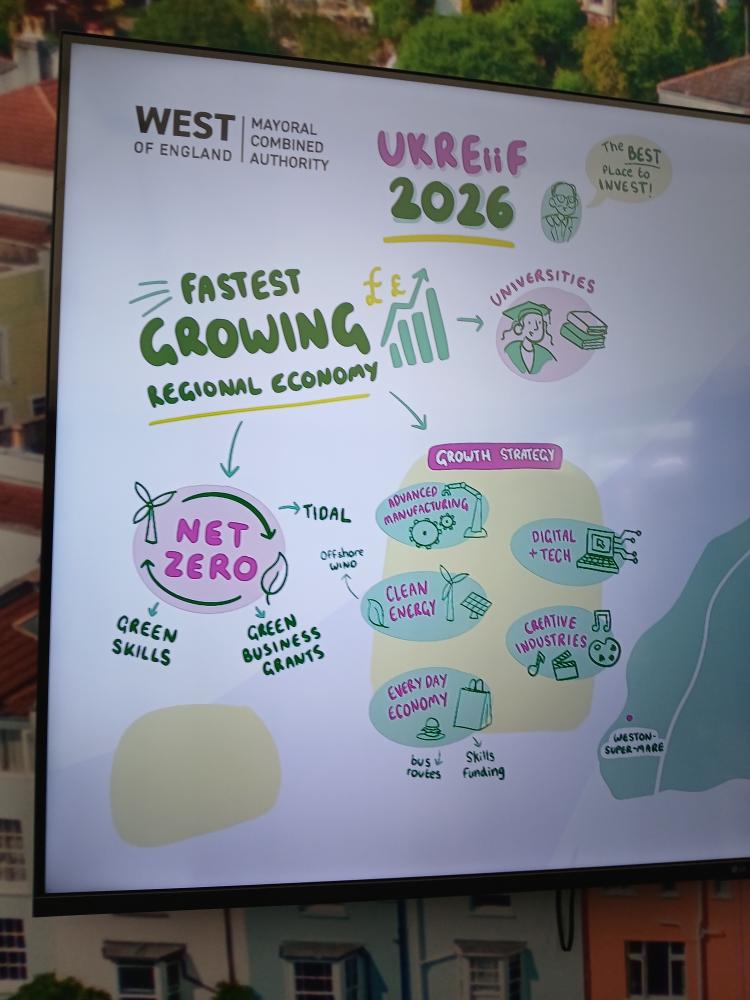 WEST
OF ENGLAND
MAYORAL
COMBINED
AUTHORITY
UKREiiF
2026
The BEST
Place to
INVEST!
FASTEST
GROWING
REGIONAL ECONOMY
£ £
UNIVERSITIES
GROWTH STRATEGY
NET
ZERO
TIDAL
GREEN
SKILLS
GREEN
BUSINESS
GRANTS
ADVANCED
MANUFACTURING
Offshore
WIND
CLEAN
ENERGY
DIGITAL
+ TECH
CREATIVE
INDUSTRIES
EVERY DAY
ECONOMY
bus
routes
Skills
funding
WESTON-
SUPER-MARE